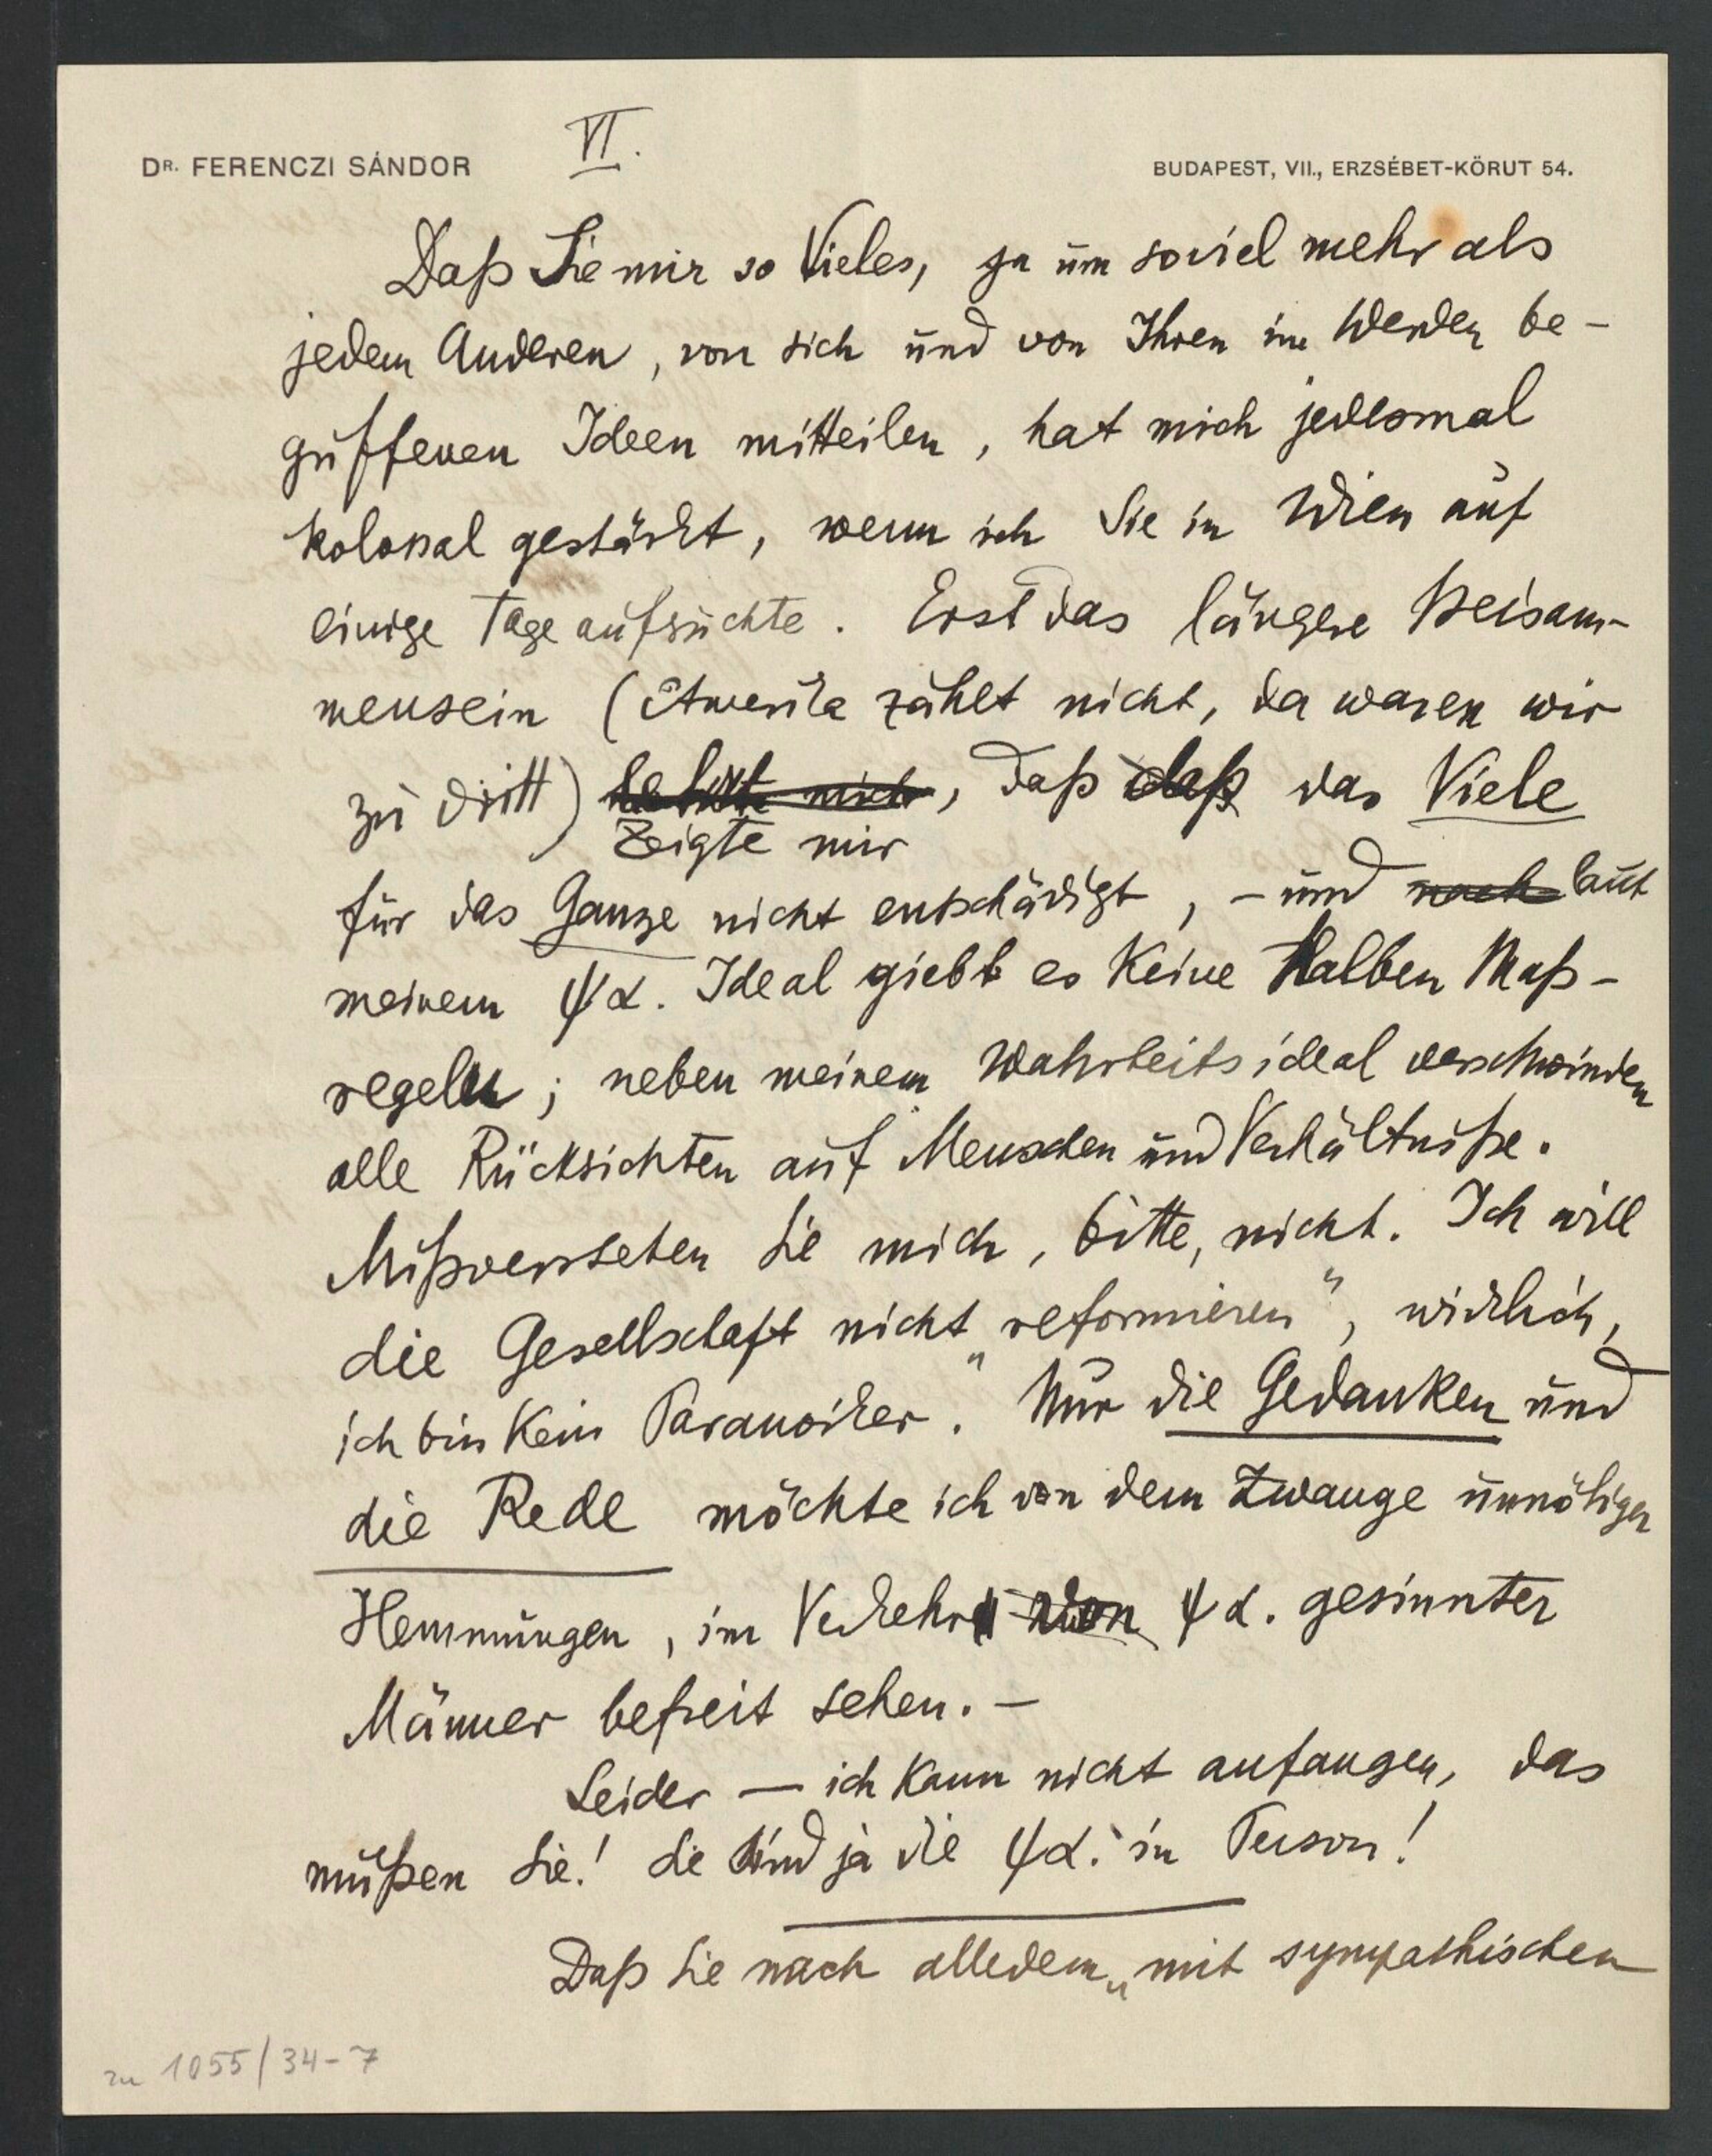 VI.
DR. FERENCZI SÁNDOR
BUDAPEST, VII., ERZSÉBET-KÖRUT 54.
Daß Sie mir so Vieles, ja um soviel mehr als
jedem Anderen, von sich und von Ihren im Werden be-
griffenen Ideen mitteilen, hat mich jedesmal
kolossal gestärkt, wenn ich Sie in Wien auf
einige Tage aufsuchte. Erst das längere Beisam-
mensein (Amerika zählt nicht, da waren wir
zu dritt) , daß daß das Viele
zeigte mir
für das Ganze nicht entschädigt, – und nach laut
meinem ψα. Ideal giebt es keine halben Maß-
regeln; neben meinem Wahrheitsideal verschwinden
alle Rücksichten auf Menschen und Verhältniße.
Mißverstehen Sie mich, bitte, nicht. Ich will
die Gesellschaft nicht „reformieren“, wirklich,
ich bin kein Paranoiker. Nur die Gedanken und
die Rede möchte ich von dem Zwange unnötiger
Hemmungen, im Verkehre von ψα. gesinnter
Männer befreit sehen. –
Leider — ich kann nicht anfangen, das
müßen Sie! Sie sind ja die ψα. in Person!
Daß Sie nach alledem „mit sympathischen
zu 1055/34-7